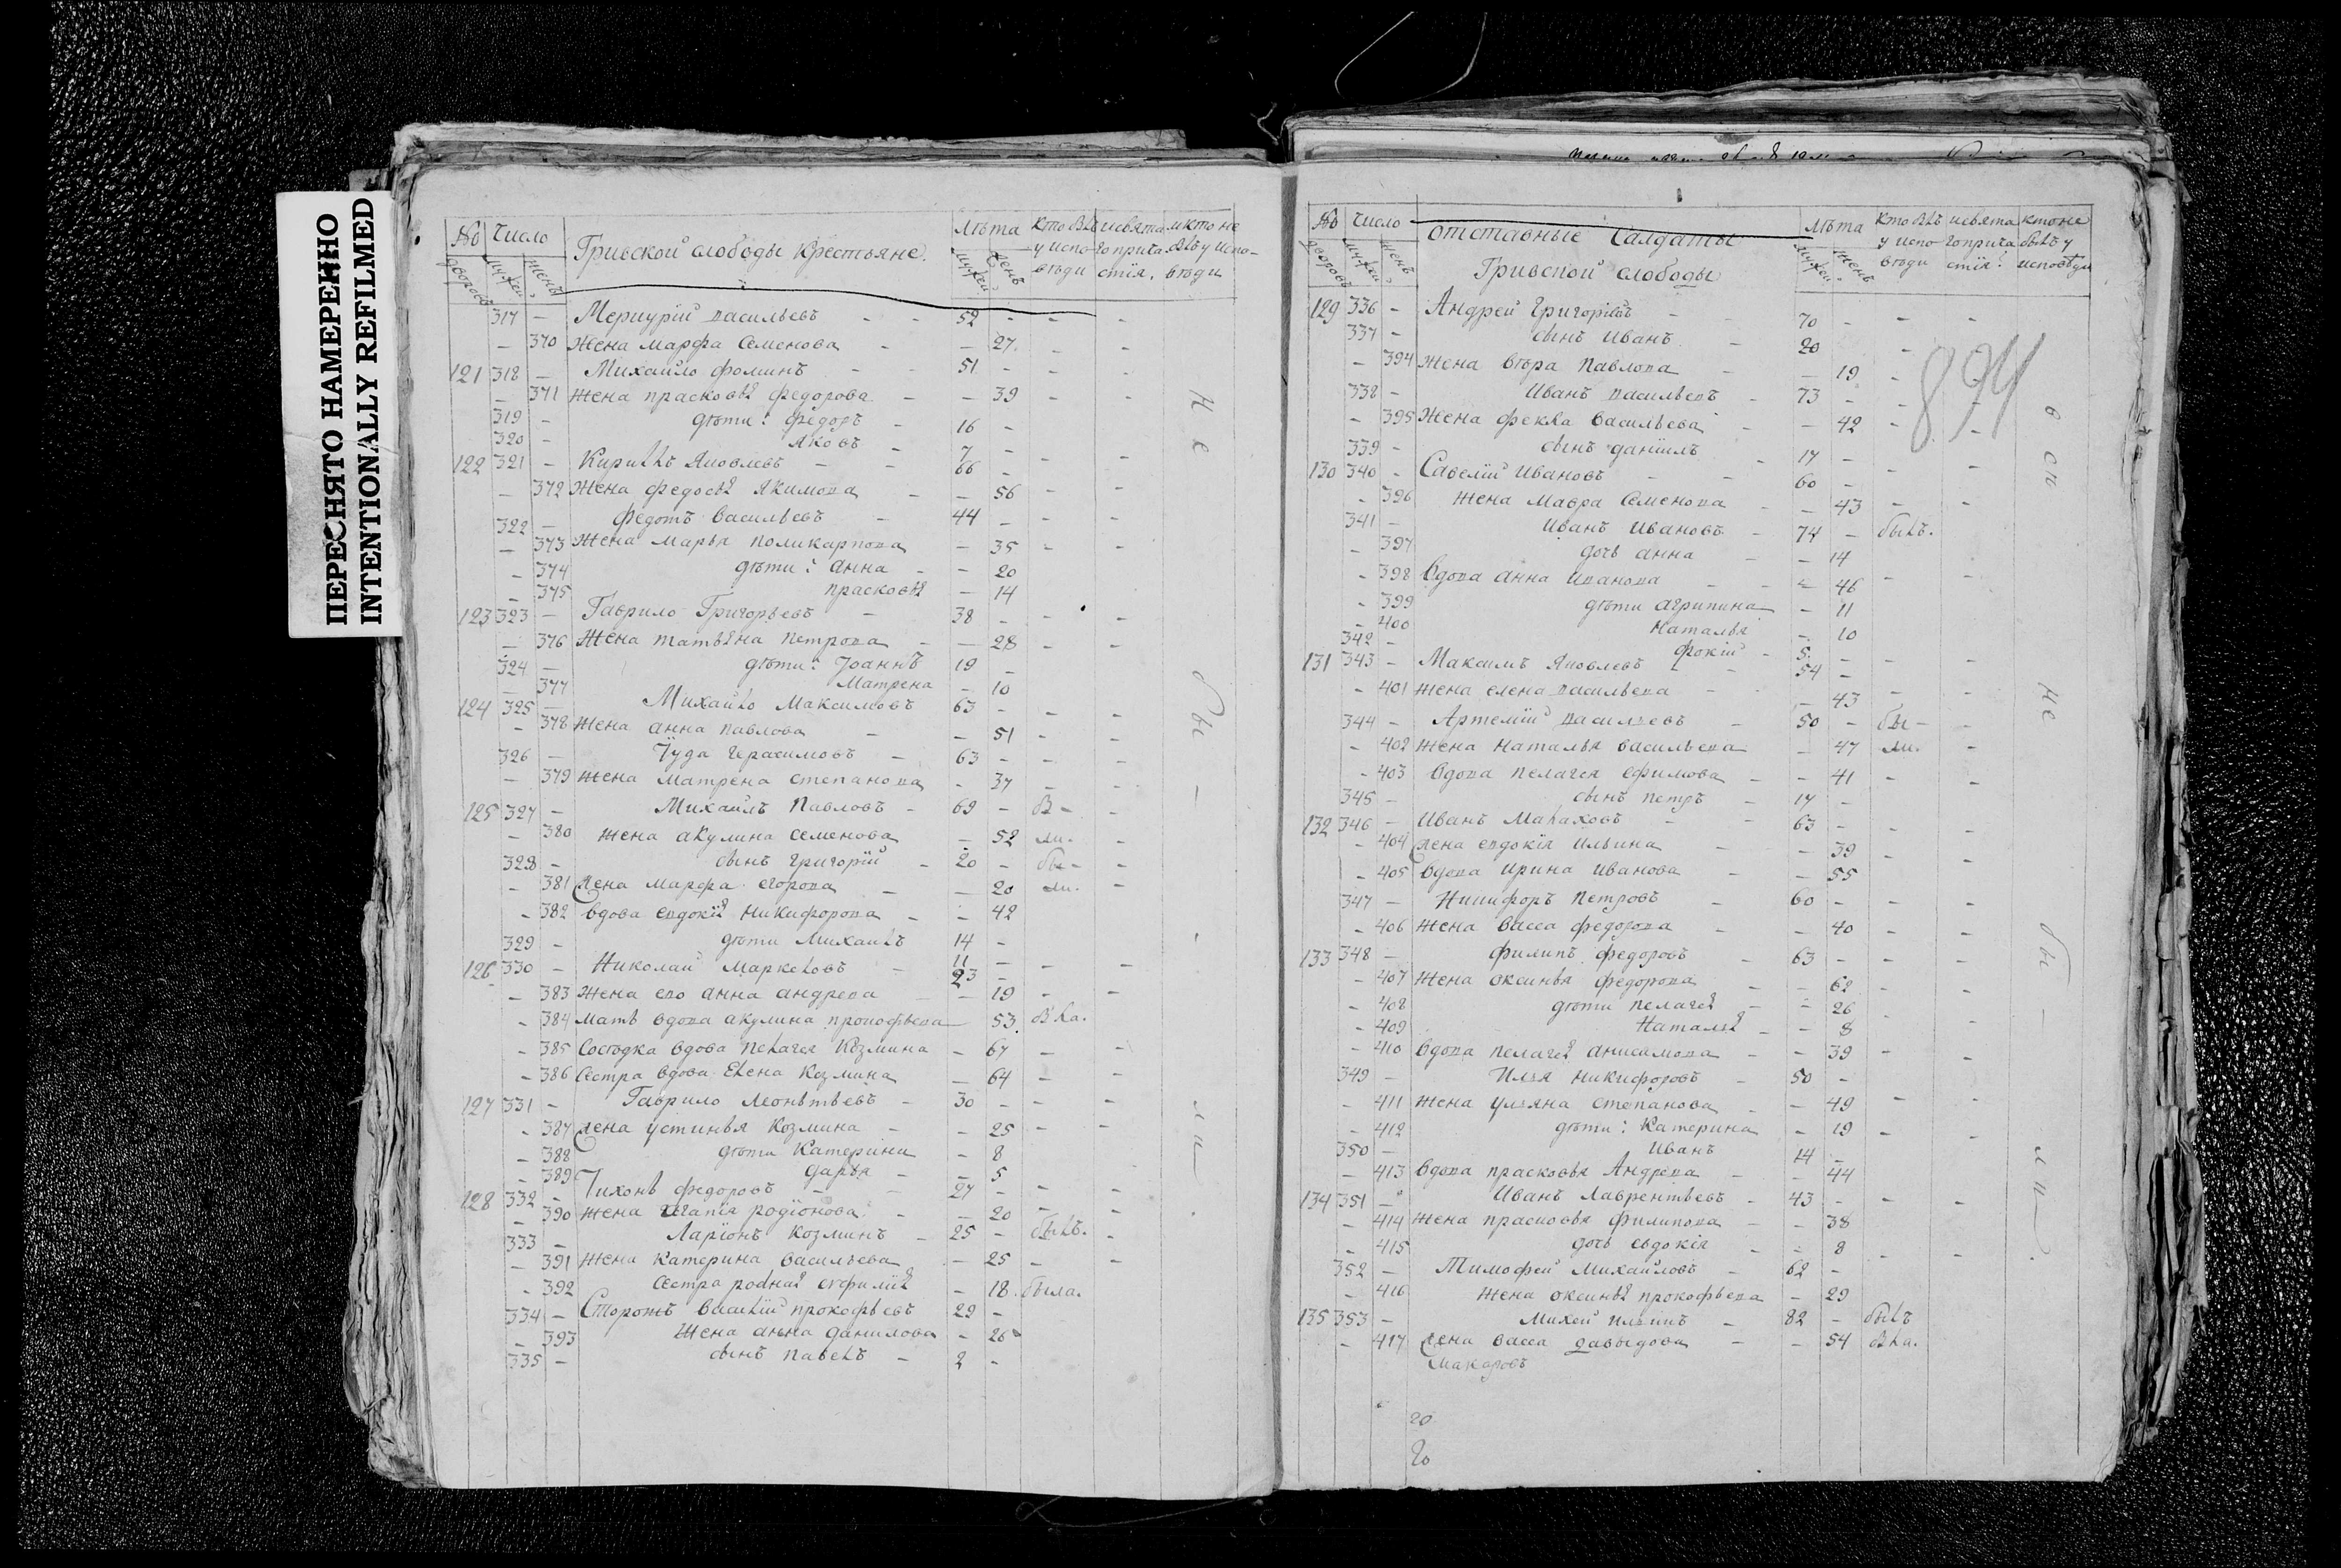 ПЕРЕСНЯТО НАМЕРЕННО
INTENTIONALLY REFILMED
№ дворовъ Число мужеи женъ Гривской слободы Крестьяне. Лѣта мужеи женъ
317 — Меркурій васильевъ 52 —
— 370 Жена марфа Семенова — 27
121 318 — Михайло фоминъ 51 —
— 371 Жена прасковьѧ федорова — 39
319 — дѣти: федоръ 16 —
320 — яковъ 7 —
122 321 — Кирилъ Яковлевъ 66 —
— 372 Жена федосьѧ якимова — 56
322 — федотъ васильевъ 44 —
— 373 Жена марья поликарпова — 35
— 374 дѣти: анна — 20
— 375 прасковьѧ — 14
123 323 — Гаврило Григорьевъ 38 —
— 376 Жена татьѧна петрова — 28
324 — дѣти: Іоаннъ 19 —
— 377 Матрена — 10
124 325 — Михайло Максимовъ 63 —
— 378 Жена анна павлова — 51
326 — Іуда герасимовъ 63 —
— 379 Жена матрена степанова — 37
125 327 — Михаилъ Павловъ 69 —
— 380 Жена акулина семенова — 52 ли.
328 — сынъ григорій 20 — бы-
— 381 Жена марфа егорова — 20 ли.
— 382 вдова евдокіѧ никифорова — 42
329 — дѣти Михаилъ 14 —
11
126 330 — Николай Маркеловъ 23 —
— 383 Жена ево анна андреева — 19
— 384 мать вдова акулина прокофьева 53.
— 385 Сосѣдка вдова пелагея Козмина — 67
— 386 Сестра вдова Елена Козмина — 64
127 331 — Гаврило Леонътьевъ 30 —
— 387 Жена устинья Козмина — 25
— 388 дѣти Катерина — 8
— 389 дарья — 5
128 332 — Тихонъ федоровъ 27 —
— 390 Жена родіонова — 20
333 — Ларіонъ Козминъ 25 — былъ.
— 391 Жена Катерина васильева — 25
— 392 Сестра родная — 18. была.
334 — Сторожъ василій прокофьевъ 29 —
— 393 Жена анъна данилова — 26
335 — сынъ павелъ 2 —
не бы — ли.
№ дворовъ Число мужеи женъ отставные Салдаты Лѣта мужеи женъ
Гривской слободы
129 336 — Андрей Григорьевъ 70 —
337 — сынъ иванъ 20
— 394 Жена вѣра павлова — 19
338 — иванъ васильевъ 73 —
— 395 Жена фекла васильева — 42
339 — сынъ данїилъ 17 —
130 340 — Савелїй Ивановъ 60 —
— 396 жена мавра Семенова — 43
341 — иванъ ивановъ 74 — былъ.
— 397 дочь анна — 14
— 398 вдова анна иванова — 46
— 399 дѣти агрипина — 11
— 400 наталья — 10
342 — фокій 5. —
131 343 — Максимъ Яковлевъ 54 —
— 401 жена елена васильева — 43
344 — Артемїй васильевъ 50 — бы-
— 402 жена наталья васильева — 47 ли.
— 403 вдова пелагея ефимова — 41
345 — сынъ петръ 17 —
132 346 — иванъ Малаховъ 63 —
— 404 Жена евдокія ильина — 39
— 405 вдова ирина иванова — 55
347 — Никифоръ петровъ 60 —
— 406 жена васса федорова — 40
133 348 — филипъ федоровъ 63 —
— 407 жена оксинья федорова — 62
— 408 дѣти пелагеѧ — 26
— 409 Натальѧ — 8
— 410 вдова пелагеѧ анисимова — 39
349 — илья никифоровъ 50 —
— 411 жена ульяна степанова — 49
— 412 дѣти: Катерина — 19
350 — иванъ 14 —
— 413 вдова прасковья Андреева — 44
134 351 — иванъ Лаврентьевъ 43 —
— 414 жена прасковья филипова — 38
— 415 дочь евдокія — 8
352 — Тимофей михайловъ 62 —
— 416 жена оксиньѧ прокофьева — 29
135 353 — михей ильинъ 82 — былъ
— 417 Жена васса давыдова — 54
Макаровъ
894
не бы — ли